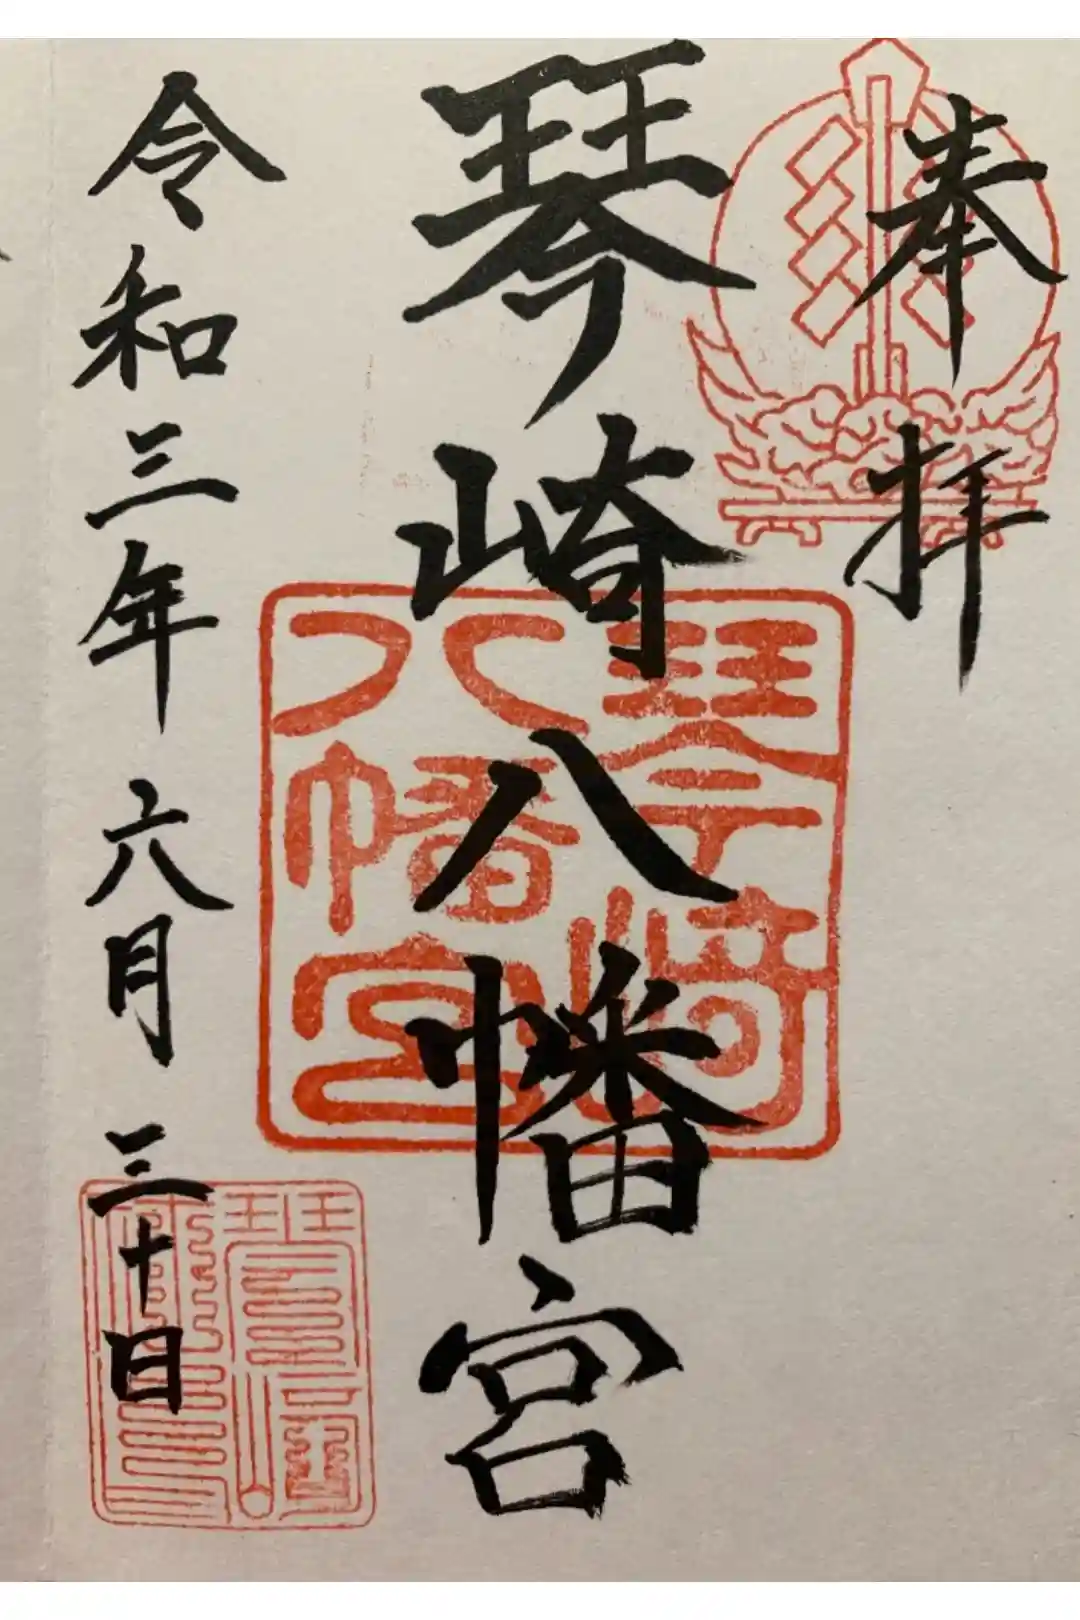 奉拝
琴崎八幡宮
琴崎
八幡宮
令和三年 六月 三十日